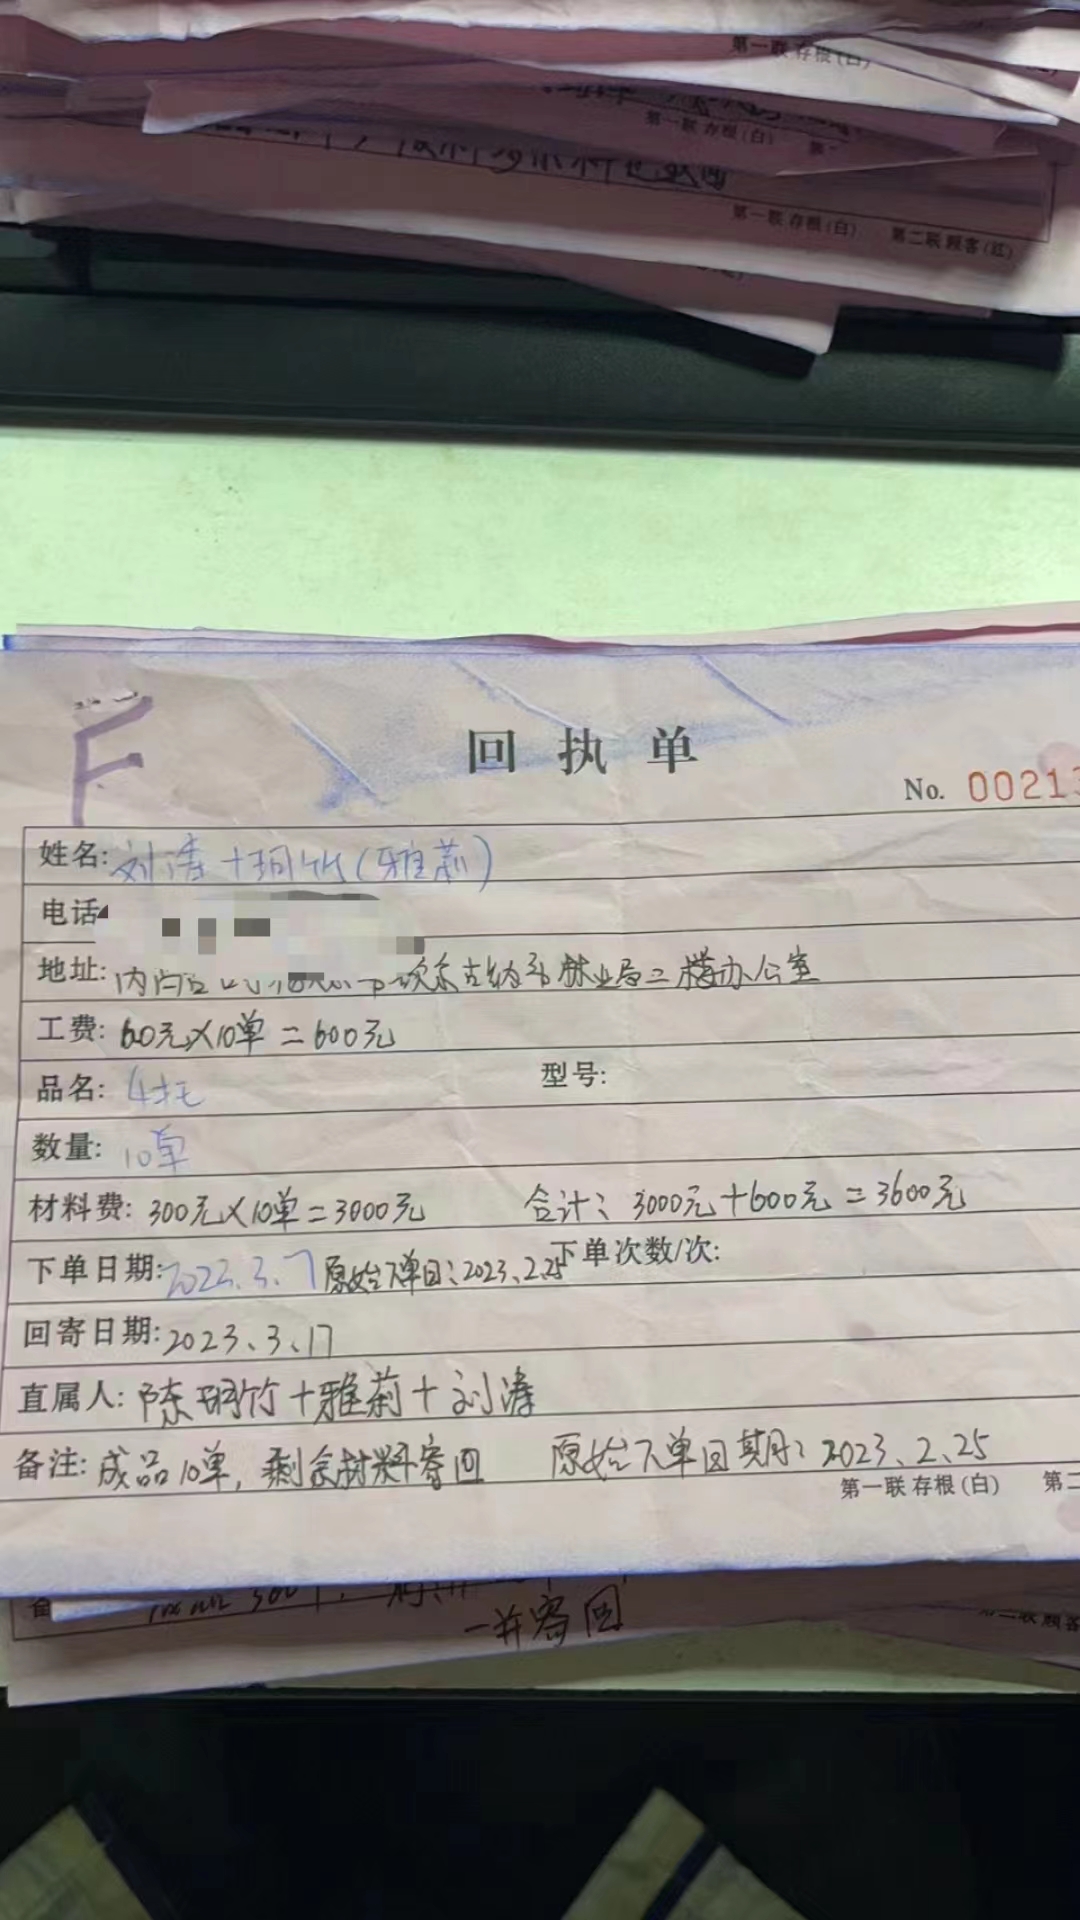 第一联 存根(白)
第一联 存根(白) 第
第一联 存根(白) 第二联 顾客(红)
F
回执单
No. 00213
姓名: 刘涛+珂竹(雅莉)
电话
地址: 内 尔古纳 林业局二楼办公室
工费: 60元×10单=600元
品名: 4托 型号:
数量: 10单
材料费: 300元×10单=3000元 合计: 3000元+600元=3600元
下单日期: 2023.3.7 原始下单日:2023.2.25 下单次数/次:
回寄日期: 2023、3、17
直属人: 陈珂竹+雅莉+刘涛
备注: 成品10单,剩余材料寄回 原始下单日期:2023、2、25
第一联 存根(白) 第二
一并寄回